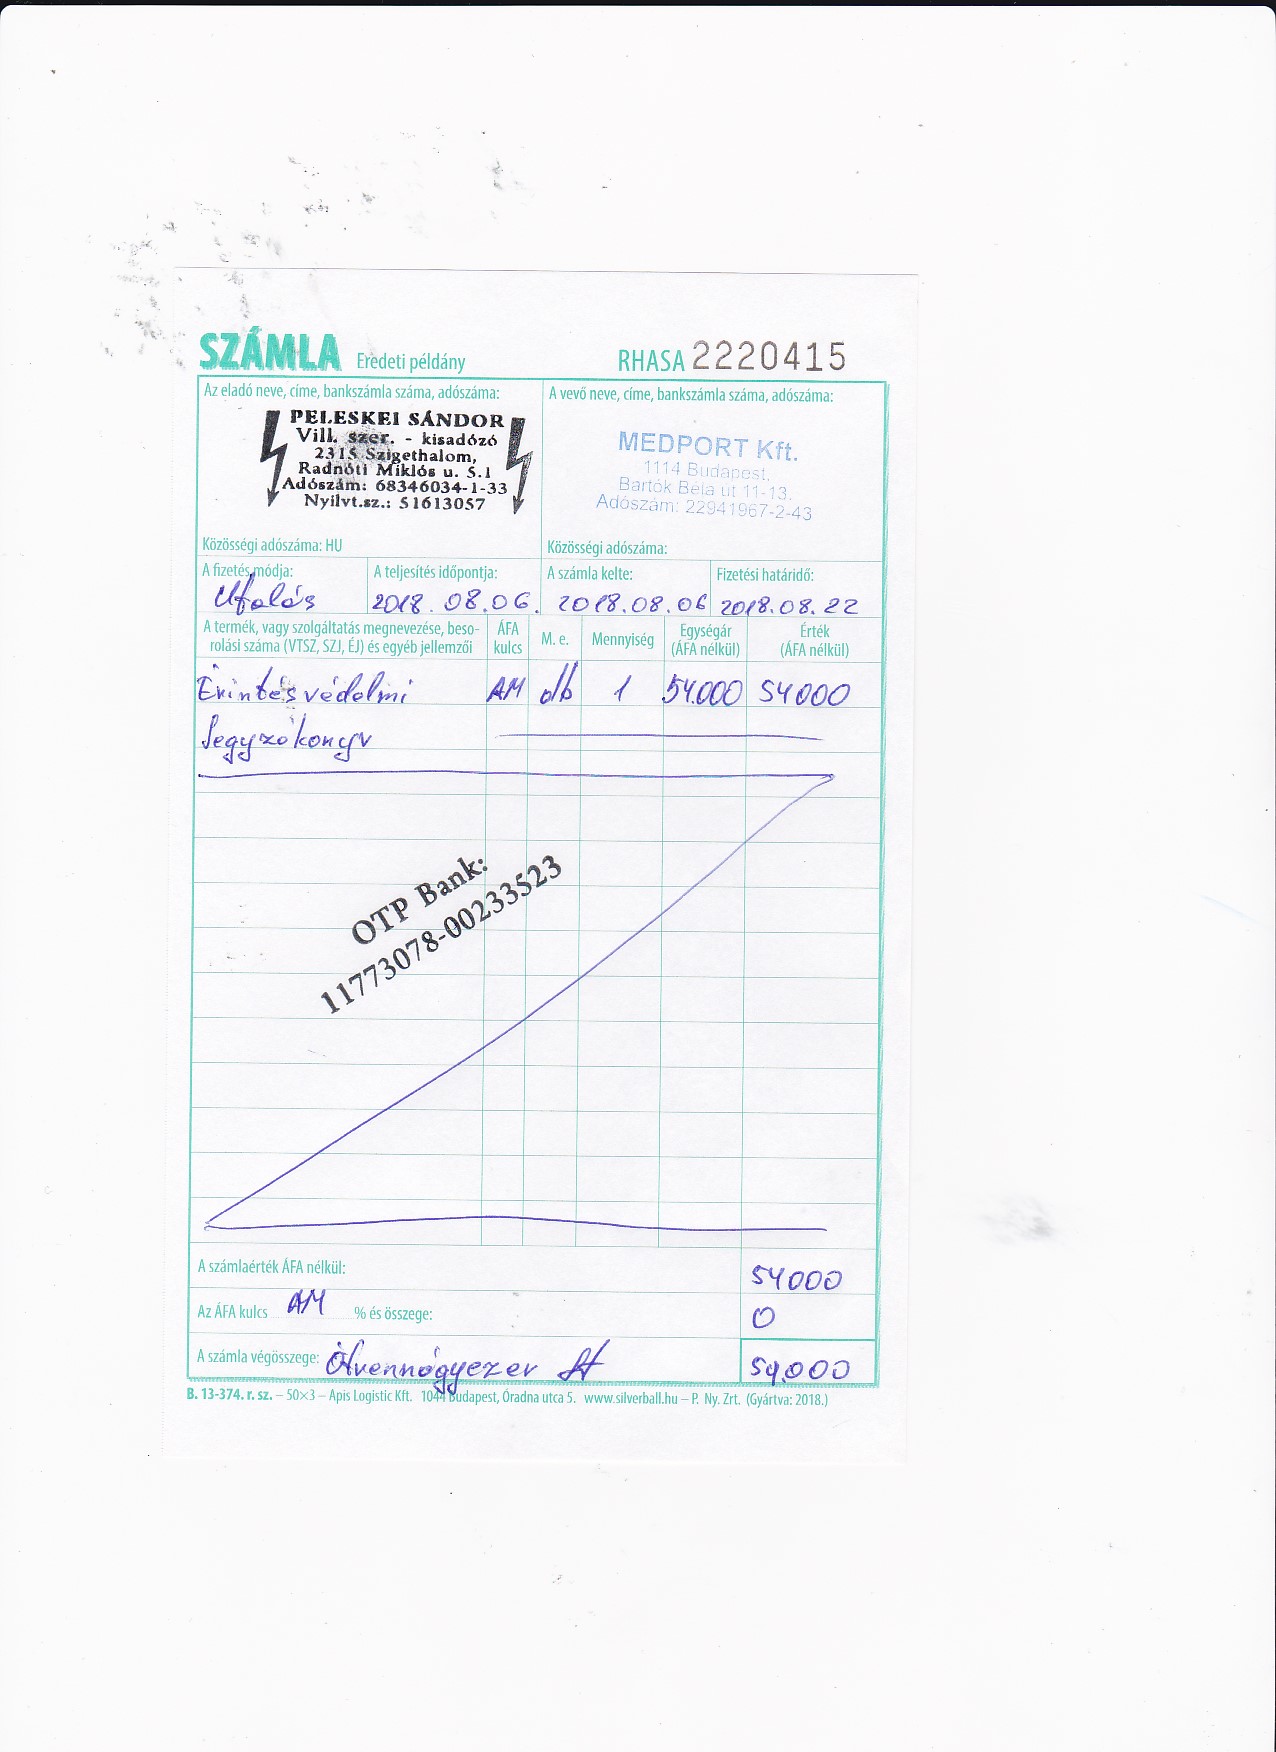 SZÁMLA Eredeti példány RHASA 2220415
Az eladó neve, címe, bankszámla száma, adószáma:
PELESKEI SÁNDOR
Vill. szer. - kisadózó
2315 Szigethalom,
Radnóti Miklós u. 5.1
Adószám: 68346034-1-33
Nyilvt.sz.: 51613057
Közösségi adószáma: HU
A vevő neve, címe, bankszámla száma, adószáma:
MEDPORT Kft.
1114 Budapest,
Bartók Béla út 11-13.
Adószám: 22941967-2-43
Közösségi adószáma:
A fizetés módja:
Utalás
A teljesítés időpontja:
2018.08.06.
A számla kelte:
2018.08.06
Fizetési határidő:
2018.08.22
A termék, vagy szolgáltatás megnevezése, beso-
rolási száma (VTSZ, SZJ, ÉJ) és egyéb jellemzői
ÁFA
kulcs
M. e.
Mennyiség
Egységár
(ÁFA nélkül)
Érték
(ÁFA nélkül)
Érintésvédelmi AM db 1 54.000 54000
Jegyzőkönyv
OTP Bank:
11773078-00233523
A számlaérték ÁFA nélkül: 54000
Az ÁFA kulcs AM % és összege: 0
A számla végösszege: Ötvennégyezer Ft 54.000
B. 13-374. r. sz. – 50×3 – Apis Logistic Kft. 1044 Budapest, Óradna utca 5. www.silverball.hu – P. Ny. Zrt. (Gyártva: 2018.)